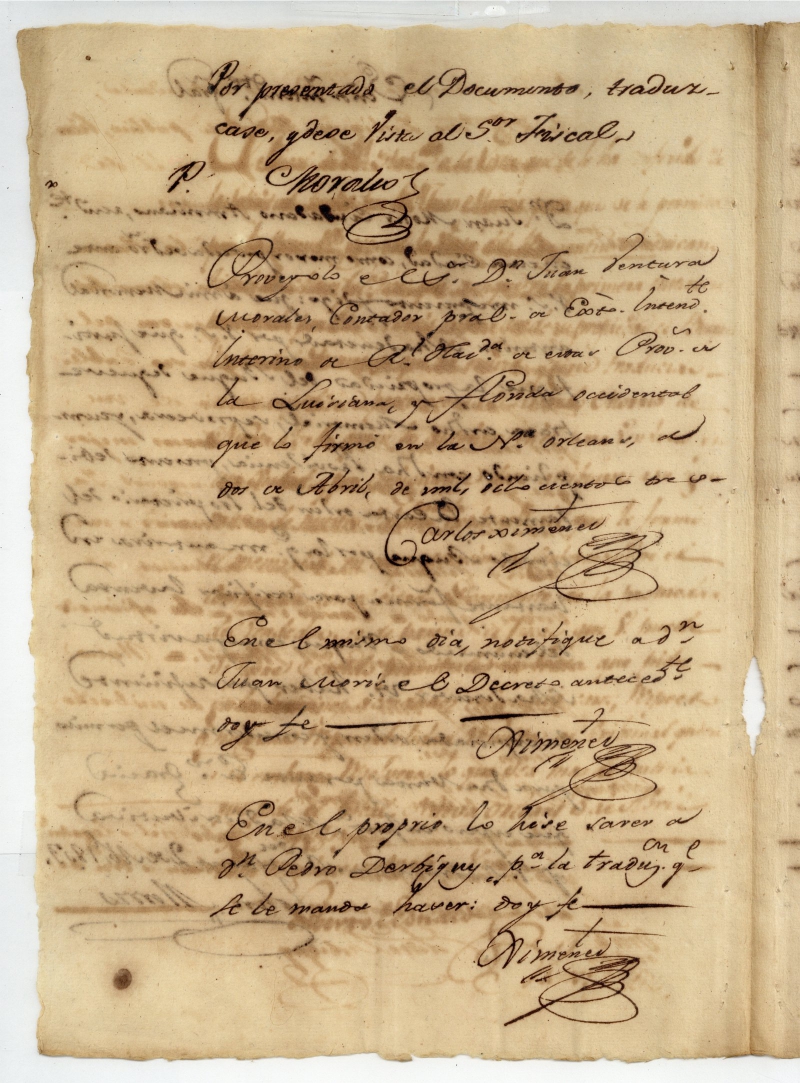 Por presentado el Documento, traduz-
case, y dese Vista al S.or Fiscal,
P. Morales
Proveyolo el S.or D.n Juan Ventura
Morales, Contador pral. de Exto. Intend.te
Interino de R.l Haz.da de estas Prov.s de
la Luisiana, y Florida occidental
que lo firmó en la N.a orleans, a
dos de Abril, de mil, ocho cientos tres-
Carlos Ximenez
En el mismo dia, notifique a d.n
Juan Moris el Decreto anteced.te
doy fe
Ximenez
En el proprio lo hise saver a
d.n Pedro Derbigny p.a la traduc.on q.e
se le manda haver: doy fe
Ximenez